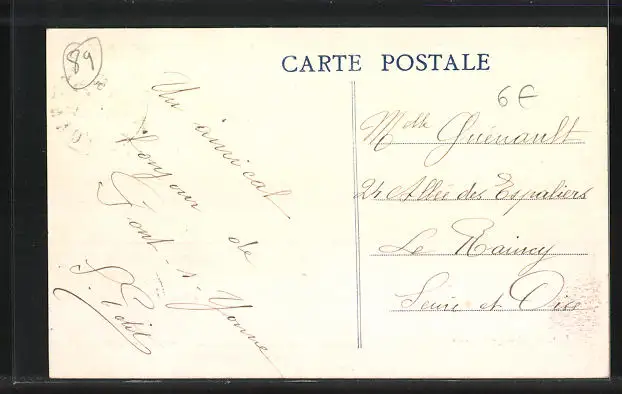 89
CARTE POSTALE
6€
Un amical
bonjour de
Pont-s-Yonne
Melle Guénault
24 Allée des Espaliers
Le Raincy
Seine et Oise